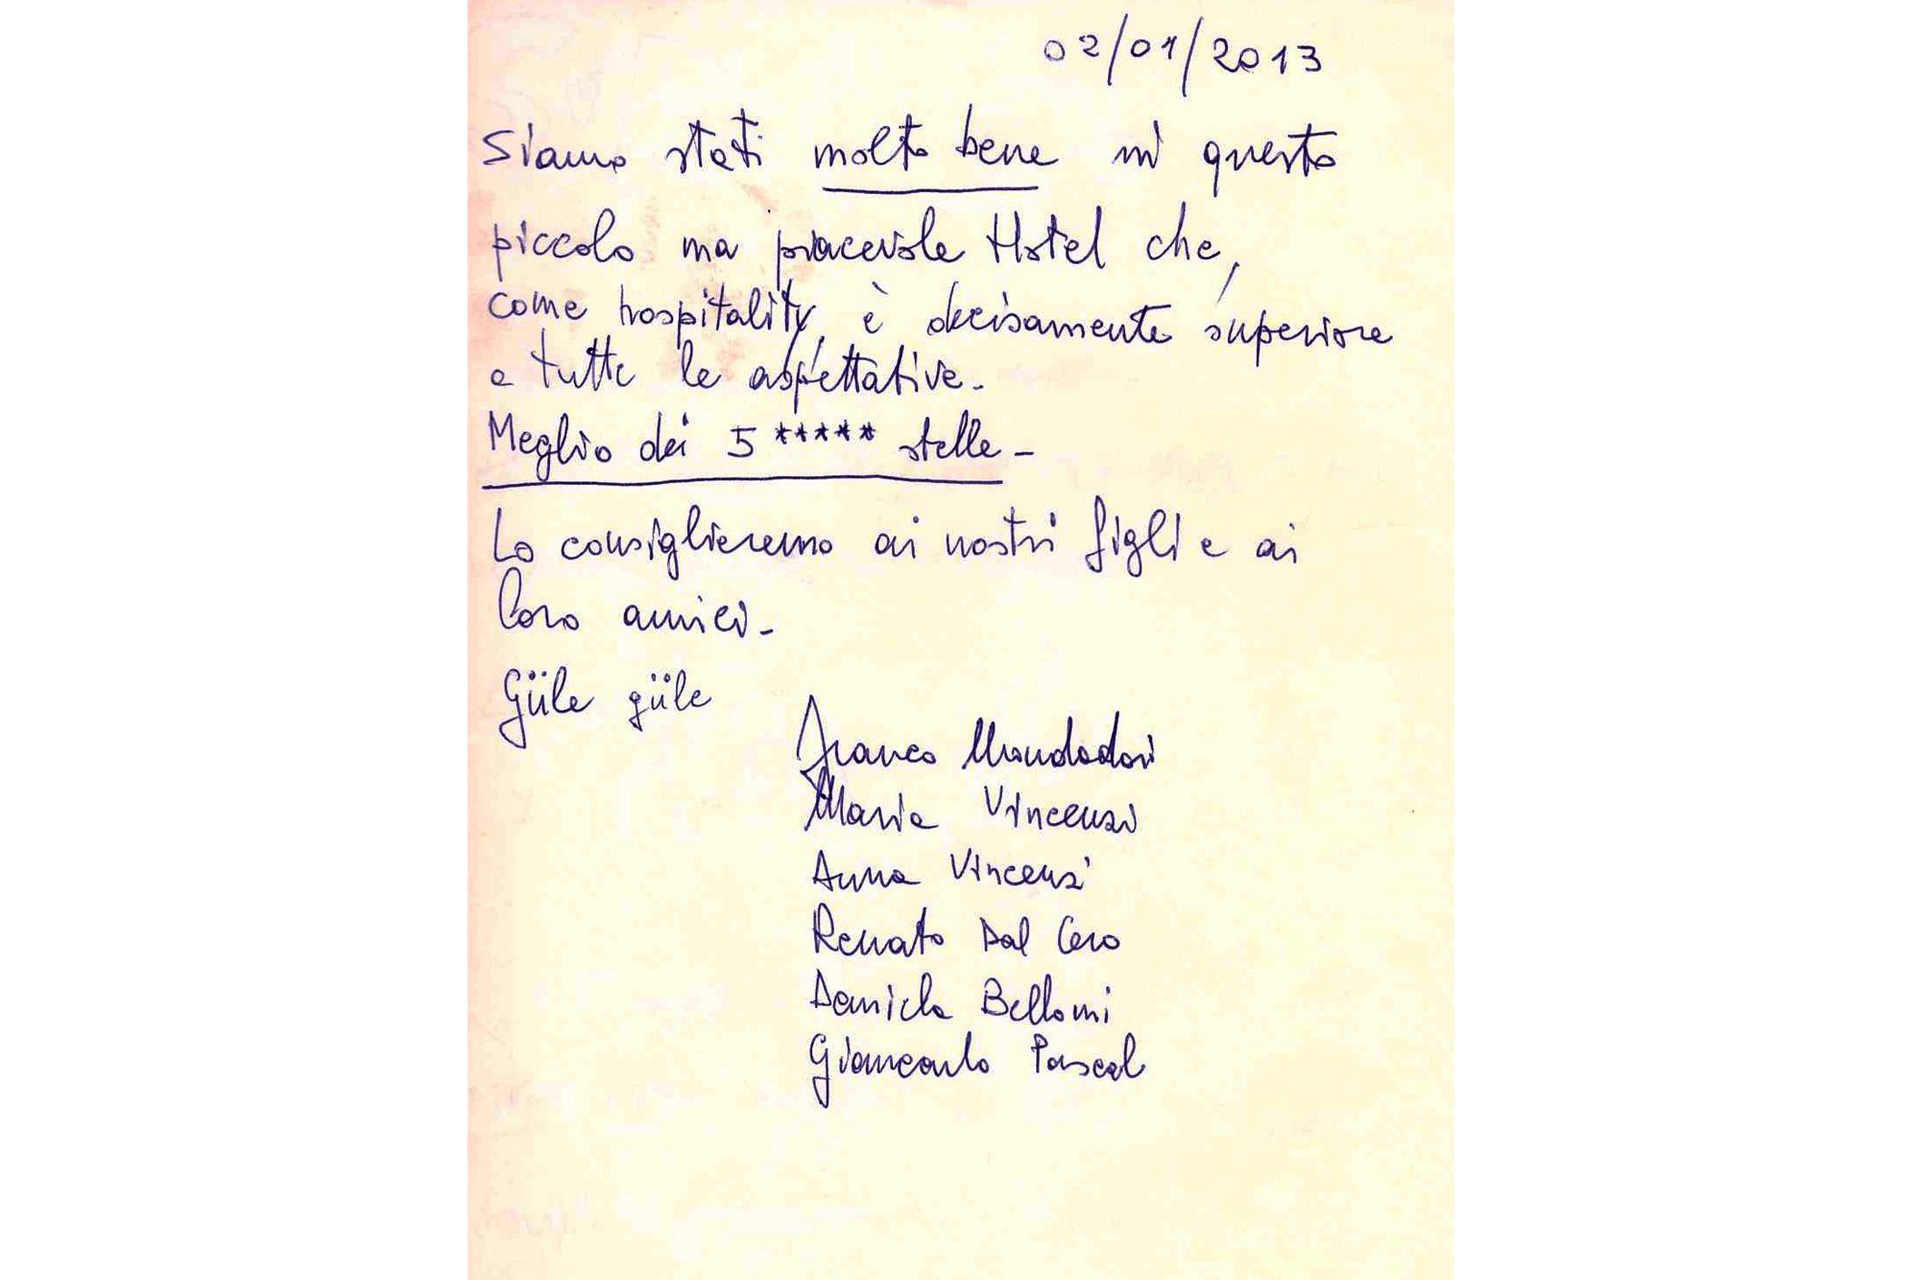 02/01/2013
Siamo stati molto bene in questo
piccolo ma piacevole Hotel che,
come hospitality, è decisamente superiore
a tutte le aspettative.
Meglio dei 5 ***** stelle -
Lo consiglieremo ai nostri figli e ai
loro amici -
Güle güle
Franco Mondadori
Maria Vincenzi
Anna Vincenzi
Renato Dal Cero
Daniela Bellomi
Giancarlo Pascal